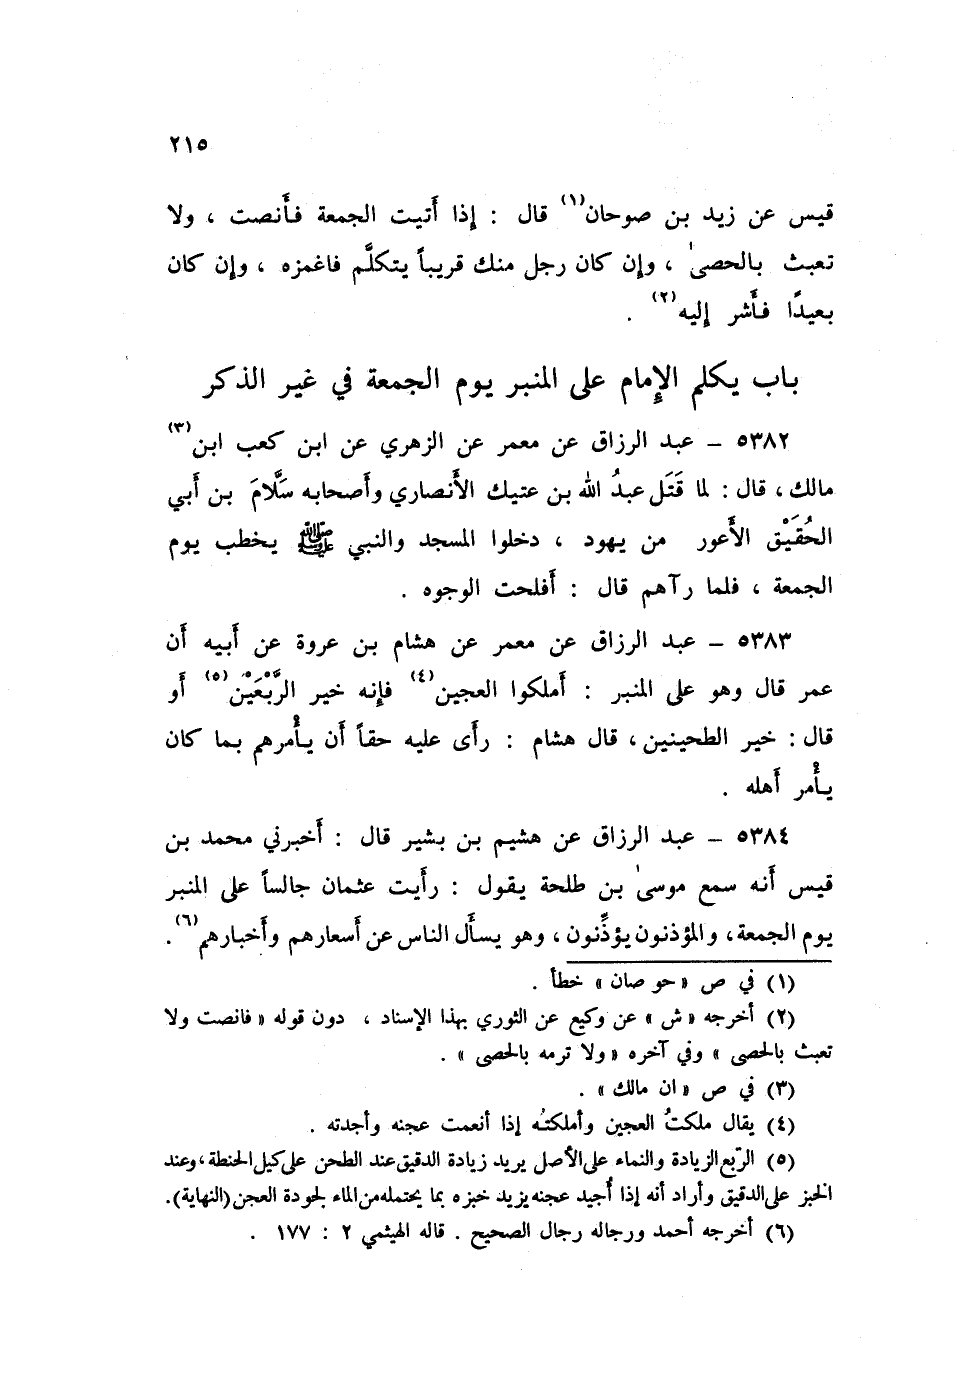 ٢١٥
قيس عن زيد بن صوحان(١) قال : إذا أَتيت الجمعة فأَنصت ، ولا
تعبث بالحصىٰ ، وإن كان رجل منك قريباً يتكلَّم فاغمزه ، وإن كان
بعيدًا فأَشر إليه(٢) .
باب يكلم الإمام على المنبر يوم الجمعة في غير الذكر
٥٣٨٢ – عبد الرزاق عن معمر عن الزهري عن ابن كعب ابن(٣)
مالك ، قال : لما قَتَل عبدُ الله بن عتيك الأَنصاري وأَصحابه سَلَّامَ بن أَبي
الحُقَيْق الأَعور من يهود ، دخلوا المسجد والنبي ﷺ يخطب يوم
الجمعة ، فلما رآهم قال : أَفلحت الوجوه .
٥٣٨٣ – عبد الرزاق عن معمر عن هشام بن عروة عن أَبيه أَن
عمر قال وهو على المنبر : أَملكوا العجين(٤) فإنه خير الرَّبْعَيْن(٥) أَو
قال : خير الطحينين ، قال هشام : رأَى عليه حقاً أَن يأْمرهم بما كان
يأْمر أَهله .
٥٣٨٤ – عبد الرزاق عن هشيم بن بشير قال : أَخبرني محمد بن
قيس أَنه سمع موسىٰ بن طلحة يقول : رأَيت عثمان جالساً على المنبر
يوم الجمعة ، والمؤذنون يؤذِّنون ، وهو يسأَل الناس عن أَسعارهم وأَخبارهم(٦) .
(١) في ص « حو صان » خطأ .
(٢) أخرجه « ش » عن وكيع عن الثوري بهذا الإسناد ، دون قوله « فانصت ولا
تعبث بالحصى » وفي آخره « ولا ترمه بالحصى » .
(٣) في ص « ان مالك » .
(٤) يقال ملكتُ العجين وأملكتُه إذا أنعمت عجنه وأجدته .
(٥) الرّيع الزيادة والنماء على الأصل يريد زيادة الدقيق عند الطحن على كيل الحنطة ، وعند
الخبز على الدقيق وأراد أنه إذا أُجيد عجنه يزيد خبزه بما يحتمله من الماء لجودة العجن (النهاية) .
(٦) أخرجه أحمد ورجاله رجال الصحيح . قاله الهيثمي ٢ : ١٧٧ .